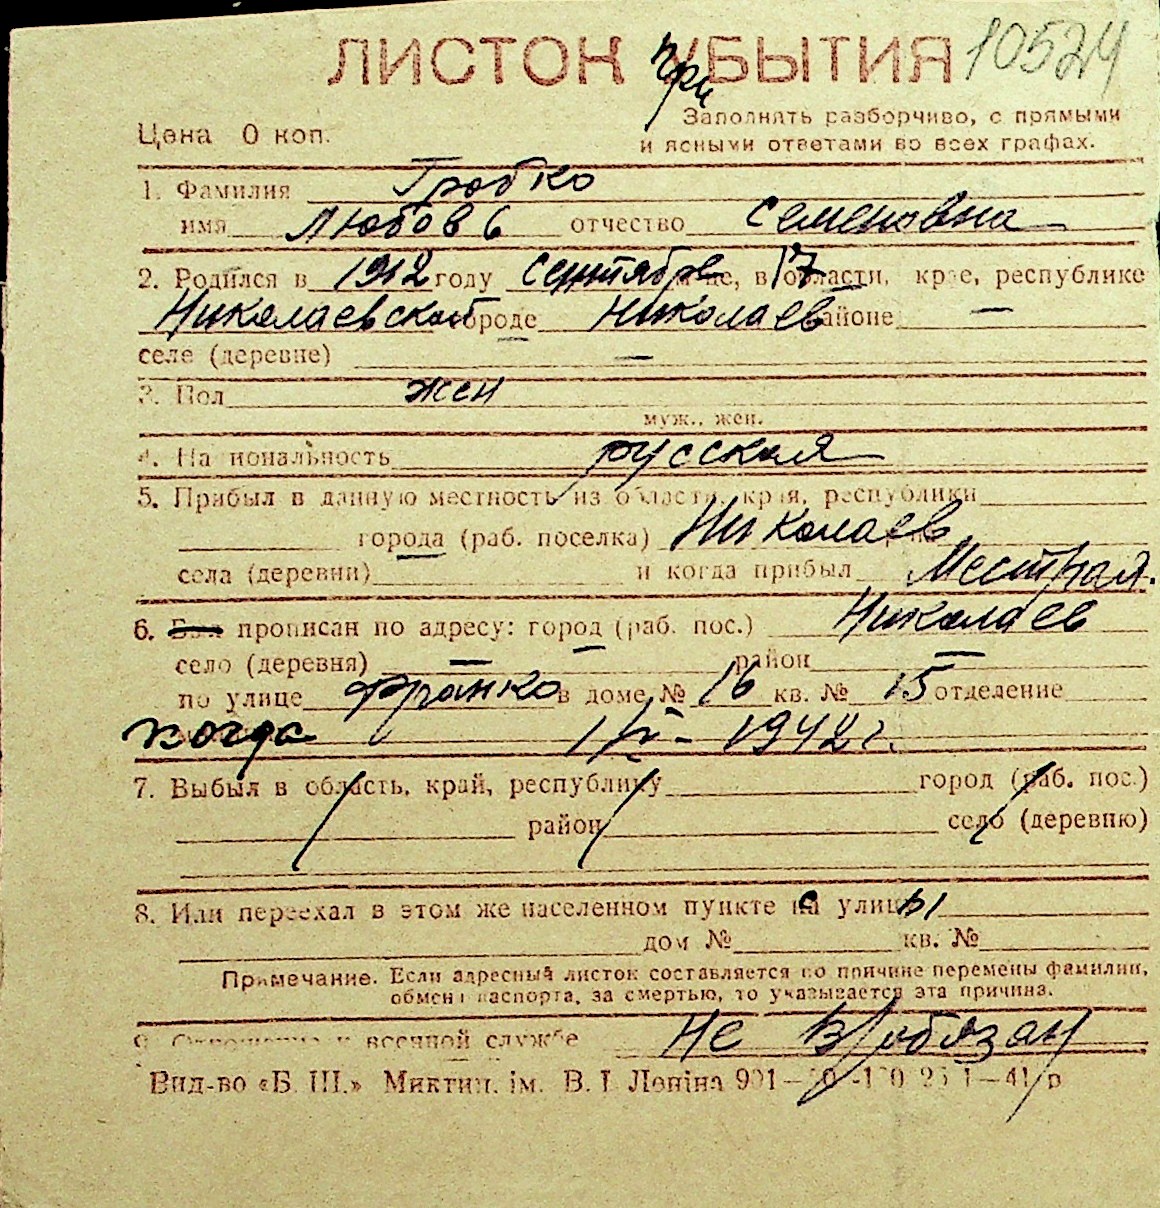 ЛИСТОК прибытия 10524
Цена 0 коп.
Заполнять разборчиво, с прямыми
и ясными ответами во всех графах.
1. Фамилия Гробко
имя Любовь отчество Семеновна
2. Родился в 1912 году Сентябре м-це, 17 в области, крае, республике
Николаевской городе Николаев районе —
селе (деревне) —
3. Пол жен
муж., жен.
4. Национальность русская
5. Прибыл в данную местность из области, края, республики
города (раб. поселка) Николаев
села (деревни) и когда прибыл Местная.
6. прописан по адресу: город (раб. пос.) Николаев
село (деревня) — район —
по улице Франко в доме № 16 кв. № 15 отделение
когда 1942 г.
7. Выбыл в область, край, республику город (раб. пос.)
район село (деревню)
8. Или переехал в этом же населенном пункте с улицы
дом № кв. №
Примечание. Если адресный листок составляется по причине перемены фамилии,
обмена паспорта, за смертью, то указывается эта причина.
9. Отношение к военной службе Не в/обязан
Вид-во «Б. Ш.» Микт ім. В. І. Леніна